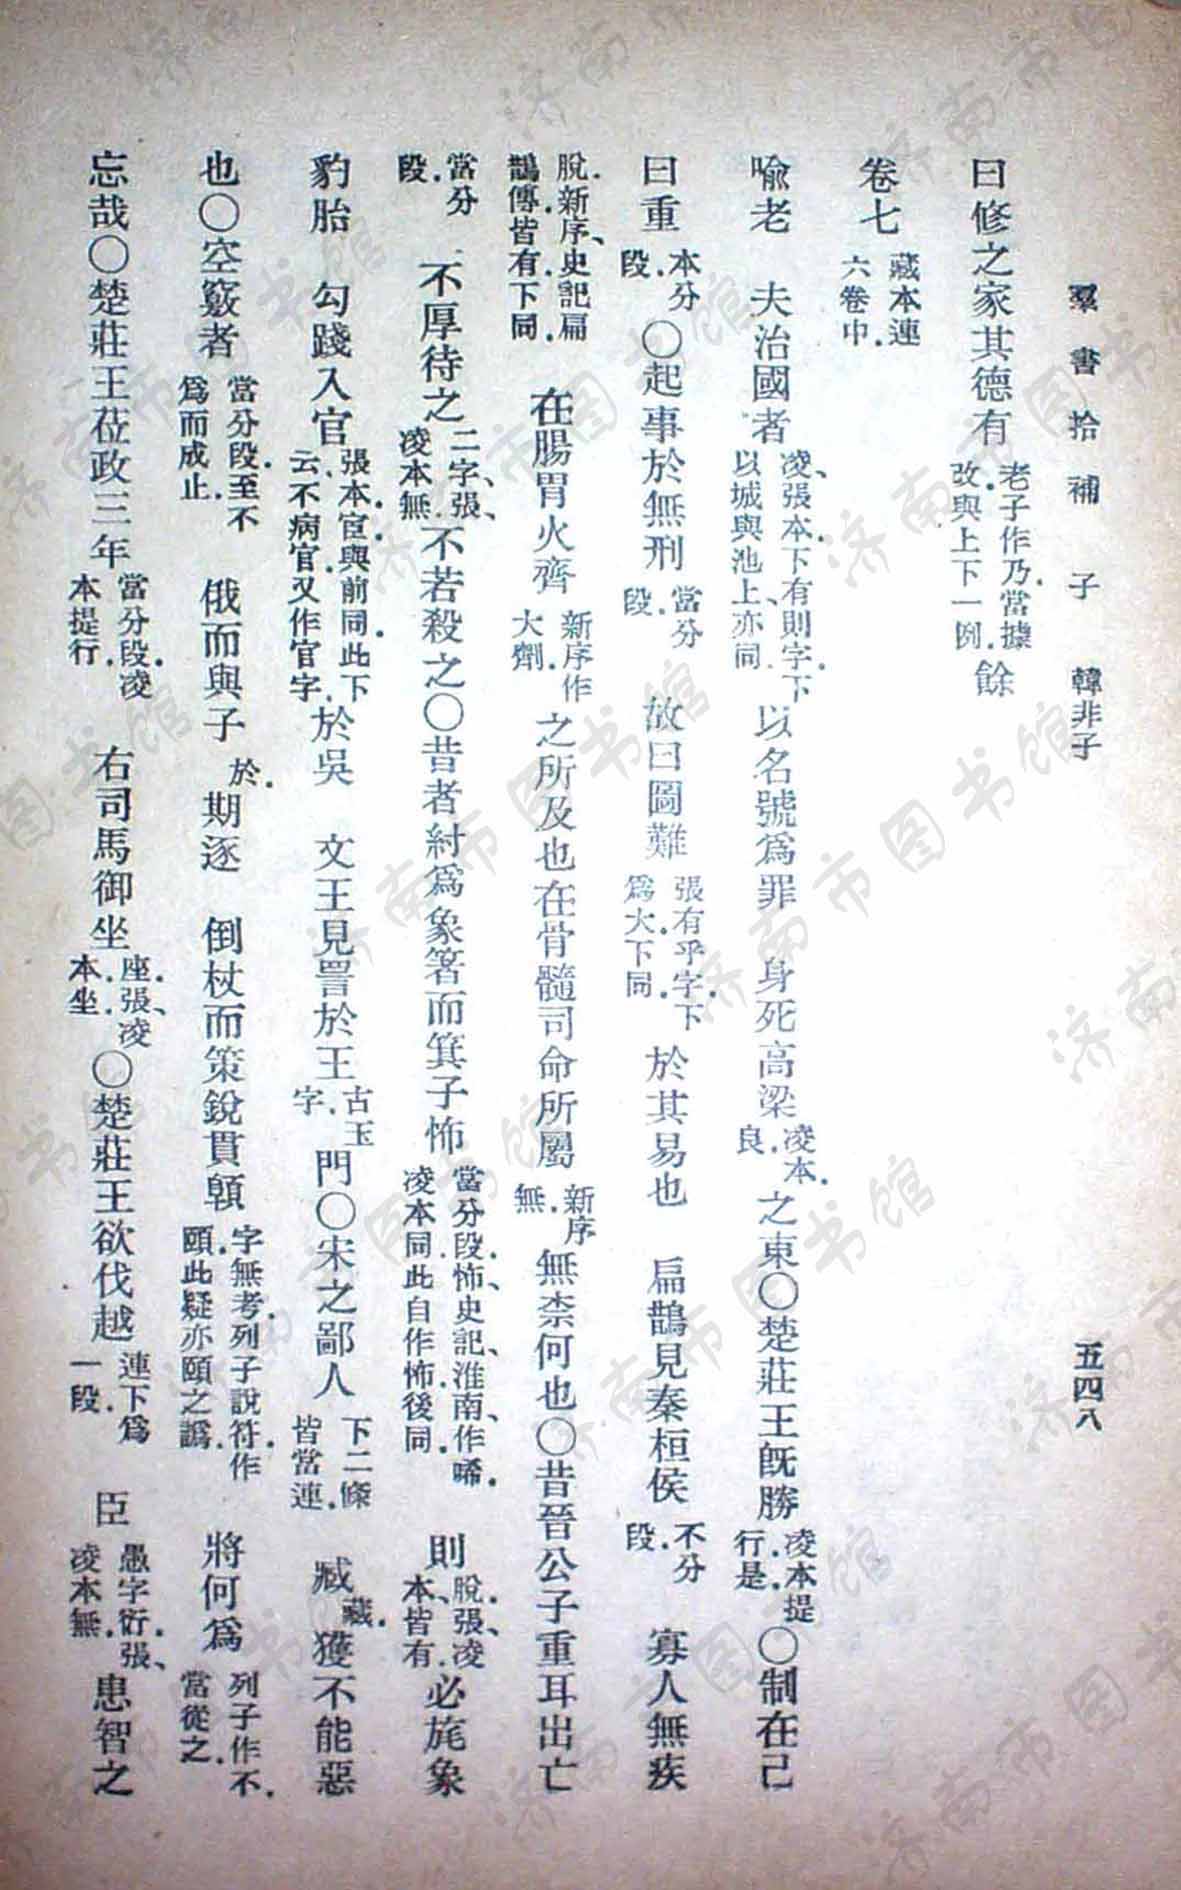 羣書拾補 子 韓非子 五四八
曰修之家其德有 老子作乃.當據改.與上下一例. 餘
卷七 藏本連六卷中.
喻老 夫治國者 凌、張本下有則字.下以城與池上、亦同. 以名號爲罪 身死高梁 凌本.良. 之東○楚莊王旣勝 凌本提行.是. ○制在己
曰重 本分段. ○起事於無刑 當分段. 故曰圖難 張有乎字.下爲大.下同. 於其易也 扁鵲見秦桓侯 不分段. 寡人無疾
脫.新序、史記扁鵲傳皆有.下同. 在腸胃火齊 新序作大劑. 之所及也在骨髓司命所屬 新序無. 無柰何也○昔晉公子重耳出亡
當分段. 不厚待之 二字張、凌本無. 不若殺之○昔者紂爲象箸而箕子怖 當分段.怖.史記、淮南作唏.凌本同.此自作怖.後同. 則 脫.張、凌本皆有. 必旄象
豹胎 勾踐入官 張本宦.與前同.此下云不病官.又作官字. 於吳 文王見詈於王 古玉字. 門○宋之鄙人 下二條皆當連. 臧 藏. 獲不能惡
也○空竅者 當分段.至不爲而成止. 俄而與子 於. 期逐 倒杖而策銳貫顊 字無考.列子說符作頤.此疑亦頤之譌. 將何爲 列子作不.當從之.
忘哉○楚莊王莅政三年 當分段.凌本提行. 右司馬御坐 座.張、凌本坐. ○楚莊王欲伐越 連下爲一段. 臣 愚字衍.張、凌本無. 患智之